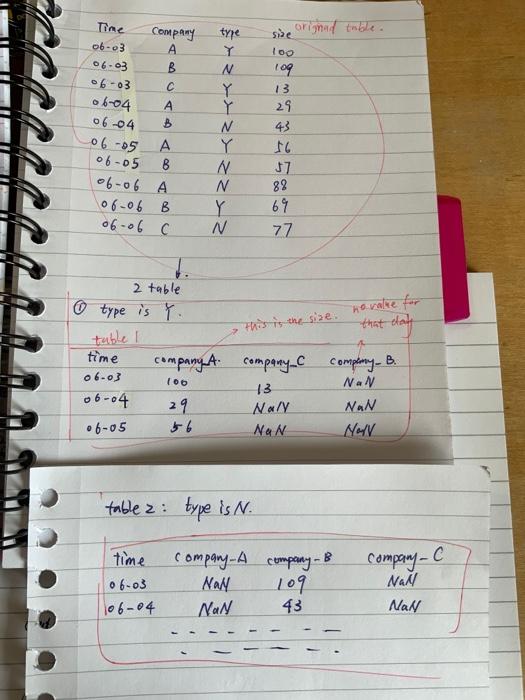 Time company type size original table.
06-03 A Y 100
06-03 B N 109
06-03 C Y 13
06-04 A Y 29
06-04 B N 43
06-05 A Y 56
06-05 B N 57
06-06 A N 88
06-06 B Y 69
06-06 C N 77
2 table
① type is Y.
this is the size.
no value for
that day
table 1
time company_A. company_C company_B.
06-03 100 13 NaN
06-04 29 NaN NaN
06-05 56 NaN NaN
table 2: type is N.
time company-A company-B company-C
06-03 NaN 109 NaN
06-04 NaN 43 NaN